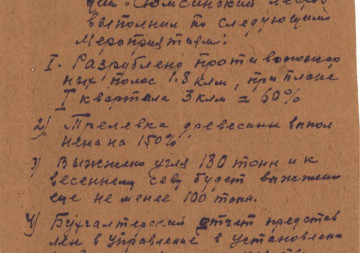 выполнил по следующим
мероприятиям:
I. Разрублено противопожар
ных полос 1.8 клм, при плане
I квартала 3 клм = 60%
2) Трелевка древесины выпол
нена на 150%
3) Выжжено угля 130 тонн и к
весеннему севу будет выжжено
еще не менее 100 тонн.
4) Бухгалтерский отчет представ
лен в управление в установлено